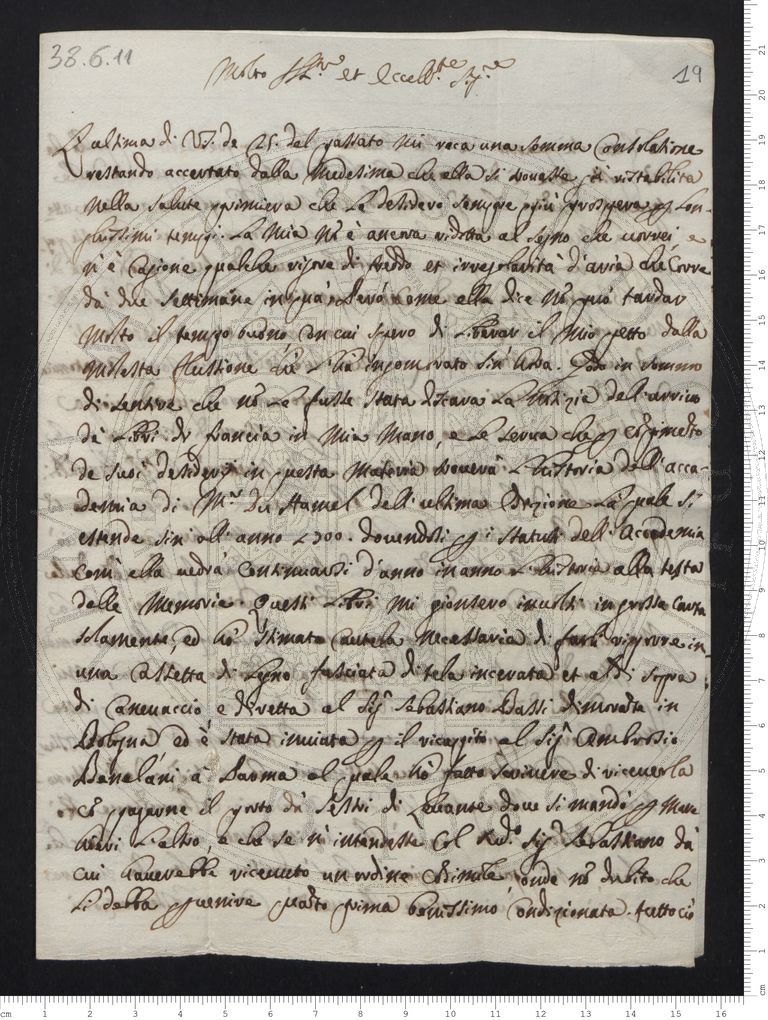 38.6.11
19
Molto Ill.re et Eccell.te Sig.re
L'ultima di V.S. de 25. del passato mi reca una somma consolatione
restando accertato dalla medesima che ella si trovasse già ristabilita
nella salute primiera che Le desidero sempre più prospera p lon-
ghissimi tempi. La mia nō è ancora ridotta al segno che vorrei, e
n'è cagione qualche rigore di freddo et irregolarità d'aria che corre
da due settimane in quà. Però come ella dice nō può tardar
molto il tempo buono con cui spero di liberar il mio petto dalla
molesta flussione che l'hà ingombrato sin' hora. Godo in sommo
di sentire che nō Le fusse stata discara La notizia dell'arrivo
de libri di francia in mia mano, e Le serva che p compimento
de suoi desiderij in questa materia troverà l'historia dell'acca-
demia di M.r Du Hamel dell'ultima Edizione La quale si
estende sin' all'anno 1700. dovendosi p i statuti dell'Accademia
com' ella vedrà continuarsi d'anno in anno L'historia alla testa
delle Memorie. Questi Libri mi gionsero involti in grossa carta
solamente, ed hò stimata cautela necessaria di farli riporre in
una Cassetta di Legno fasciata di tela incerata et al di sopra
di Canevaccio e diretta al Sig.r Sebastiano Bassi dimorante in
Bologna ed è stata inviata p il ricapito al Sig.r Ambrosio
à Parma al quale hò fatto scrivere di riceverla
cō pagarne il porto da Sestri di Levante dove si mandò p mare
hieri l'altro, e che se n'intendesse col sud.o Sig.r Sebastiano da
cui haverebbe ricevuto un ordine consimile onde nō dubito che
Li debba pvenire quanto prima benissimo condizionata. tutto ciò